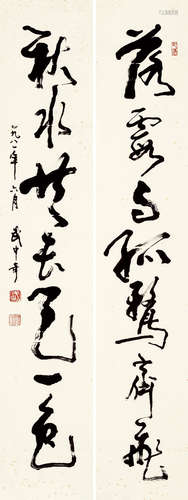 落霞与孤鹜齊飛
秋水共長天一色
一九八二年六月 武中奇